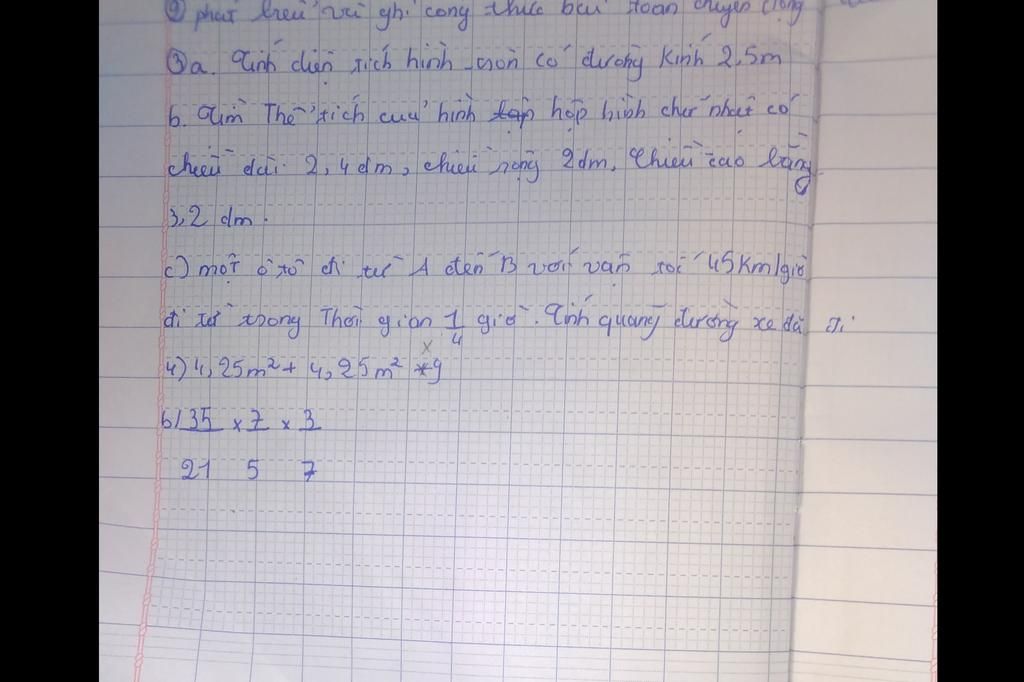 ② phát biểu và ghi công thức bài toán chuyển động
③a. Tính diện tích hình tròn có đường kính 2,5m
b. Tìm Thể tích của hình hộp hình chữ nhật có
chiều dài 2,4 dm, chiều rộng 2dm, chiều cao bằng
3,2 dm.
c) một ô tô đi từ A đến B với vận tốc 45km/giờ
đi từ trong Thời gian 1/4 giờ. Tính quãng đường xe đã đi
4) 4,25m² + 4,25m² × 9
b/ 35/21 × 7/5 × 3/7